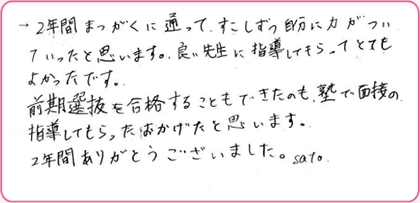 → 2年間まつがくに通って、すこしずつ自分に力がつい
ていったと思います。良い先生に指導してもらってとても
よかったです。
前期選抜を合格することもできたのも、塾で面接の
指導してもらったおかげだと思います。
2年間ありがとうございました。sato.